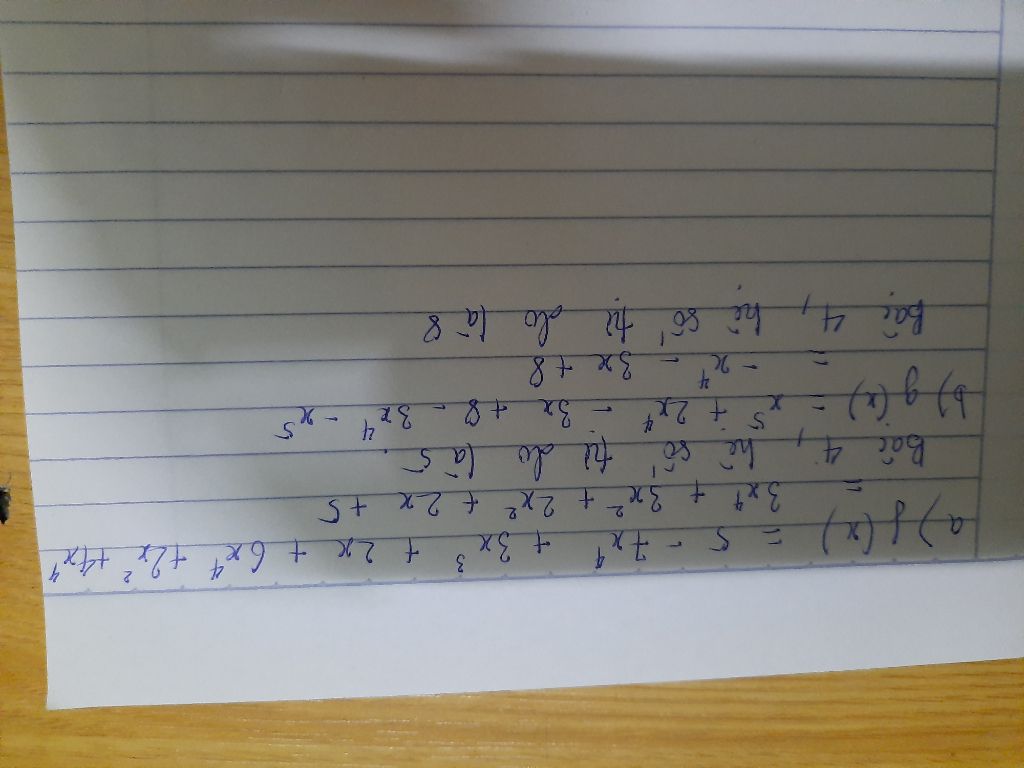 a) f(x) = 5 - 7x⁴ + 3x³ + 2x + 6x⁴ + 2x² + 4x⁴
= 3x⁴ + 3x² + 2x² + 2x + 5
Bâc 4, hê số tị do là 5.
b) g(x) = x⁵ + 2x⁴ - 3x + 8 - 3x⁴ - x⁵
= - x⁴ - 3x + 8
Bâc 4, hê số tị do là 8